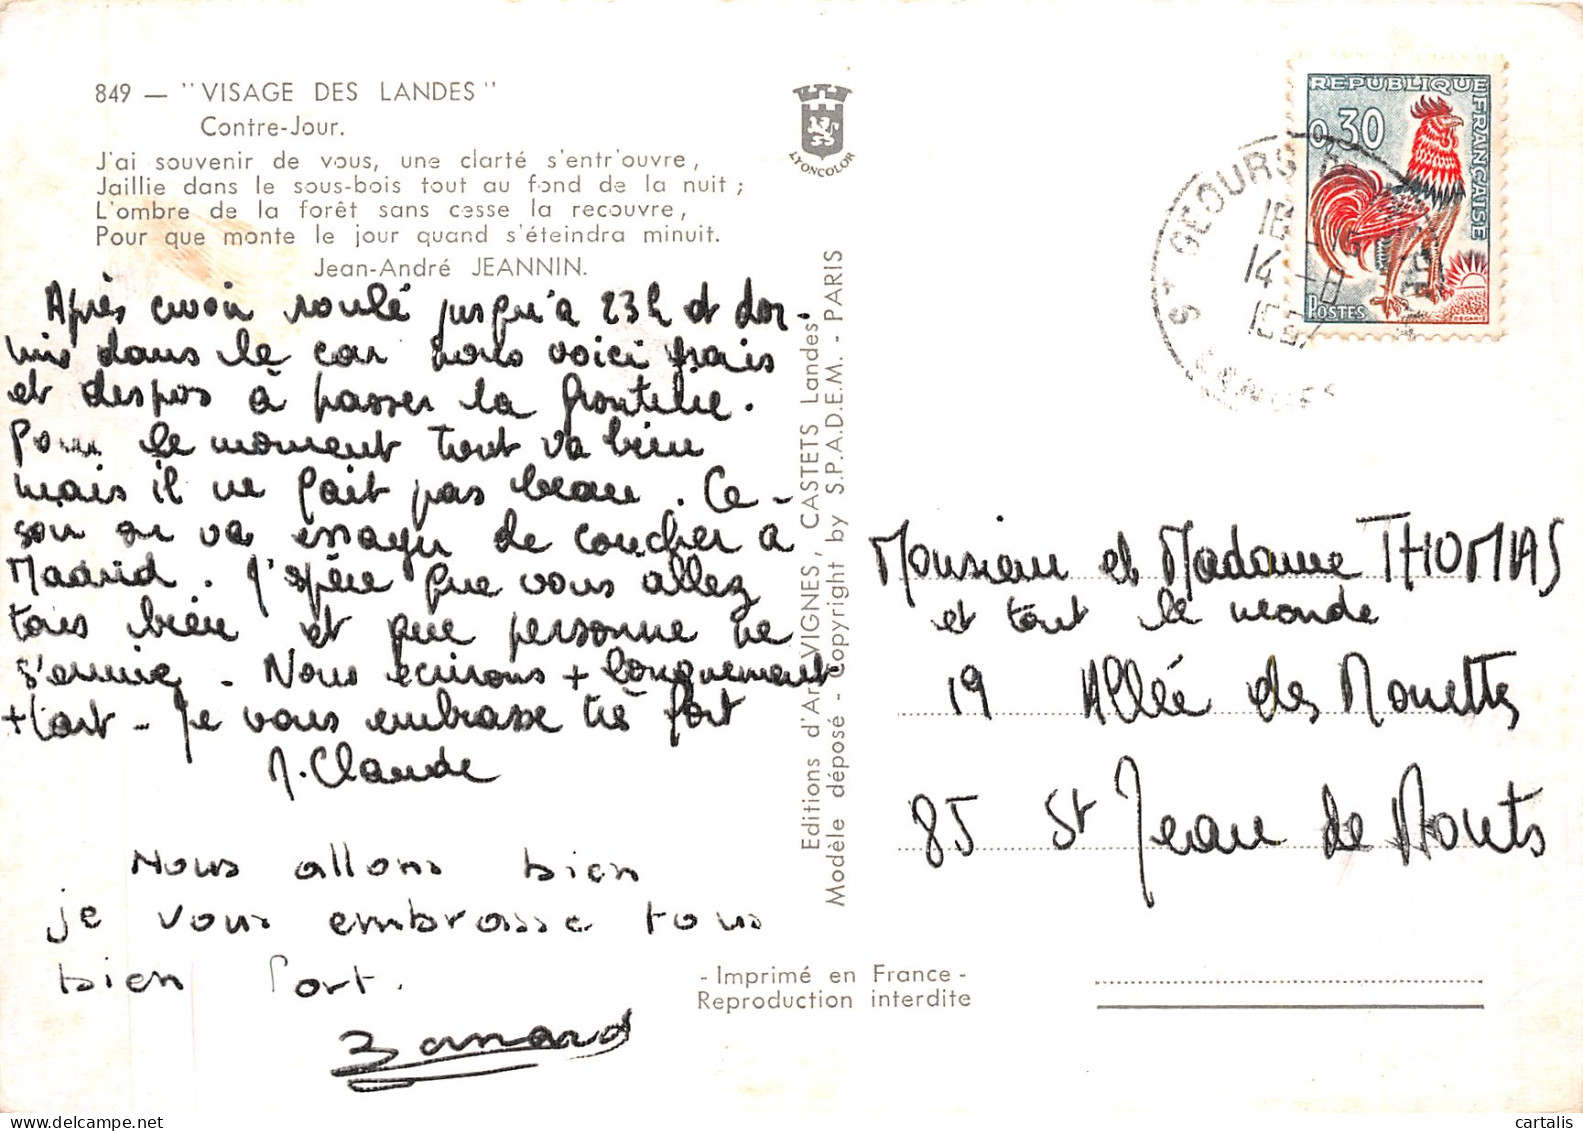 849 — "VISAGE DES LANDES"
Contre-Jour.
J'ai souvenir de vous, une clarté s'entr'ouvre,
Jaillie dans le sous-bois tout au fond de la nuit ;
L'ombre de la forêt sans cesse la recouvre,
Pour que monte le jour quand s'éteindra minuit.
Jean-André JEANNIN.
Après avoir roulé jusqu'à 23h et dor-
mis dans le car nous voici frais
et despos à passer la frontière.
Pour le moment tout va bien
mais il ne fait pas beau. Ce-
soir on va essayer de coucher à
Madrid. J'espère que vous allez
tous bien et que personne ne
s'ennuie - Nous écrirons + longuement
+ tard - Je vous embrasse très fort
M. Claude
Nous allons bien
je vous embrasse tous
bien fort.
Bernard
Editions d'Art VIGNES, CASTETS Landes
Modèle déposé - Copyright by S.P.A.D.E.M. - PARIS
LYONCOLOR
- Imprimé en France -
Reproduction interdite
REPUBLIQUE FRANÇAISE
0,30
POSTES
ST GEOURS
14 - 8
LANDES
Monsieur et Madame THOMAS
et tout le monde
19 Allée des Mouettes
85 St Jean de Monts
cartalis